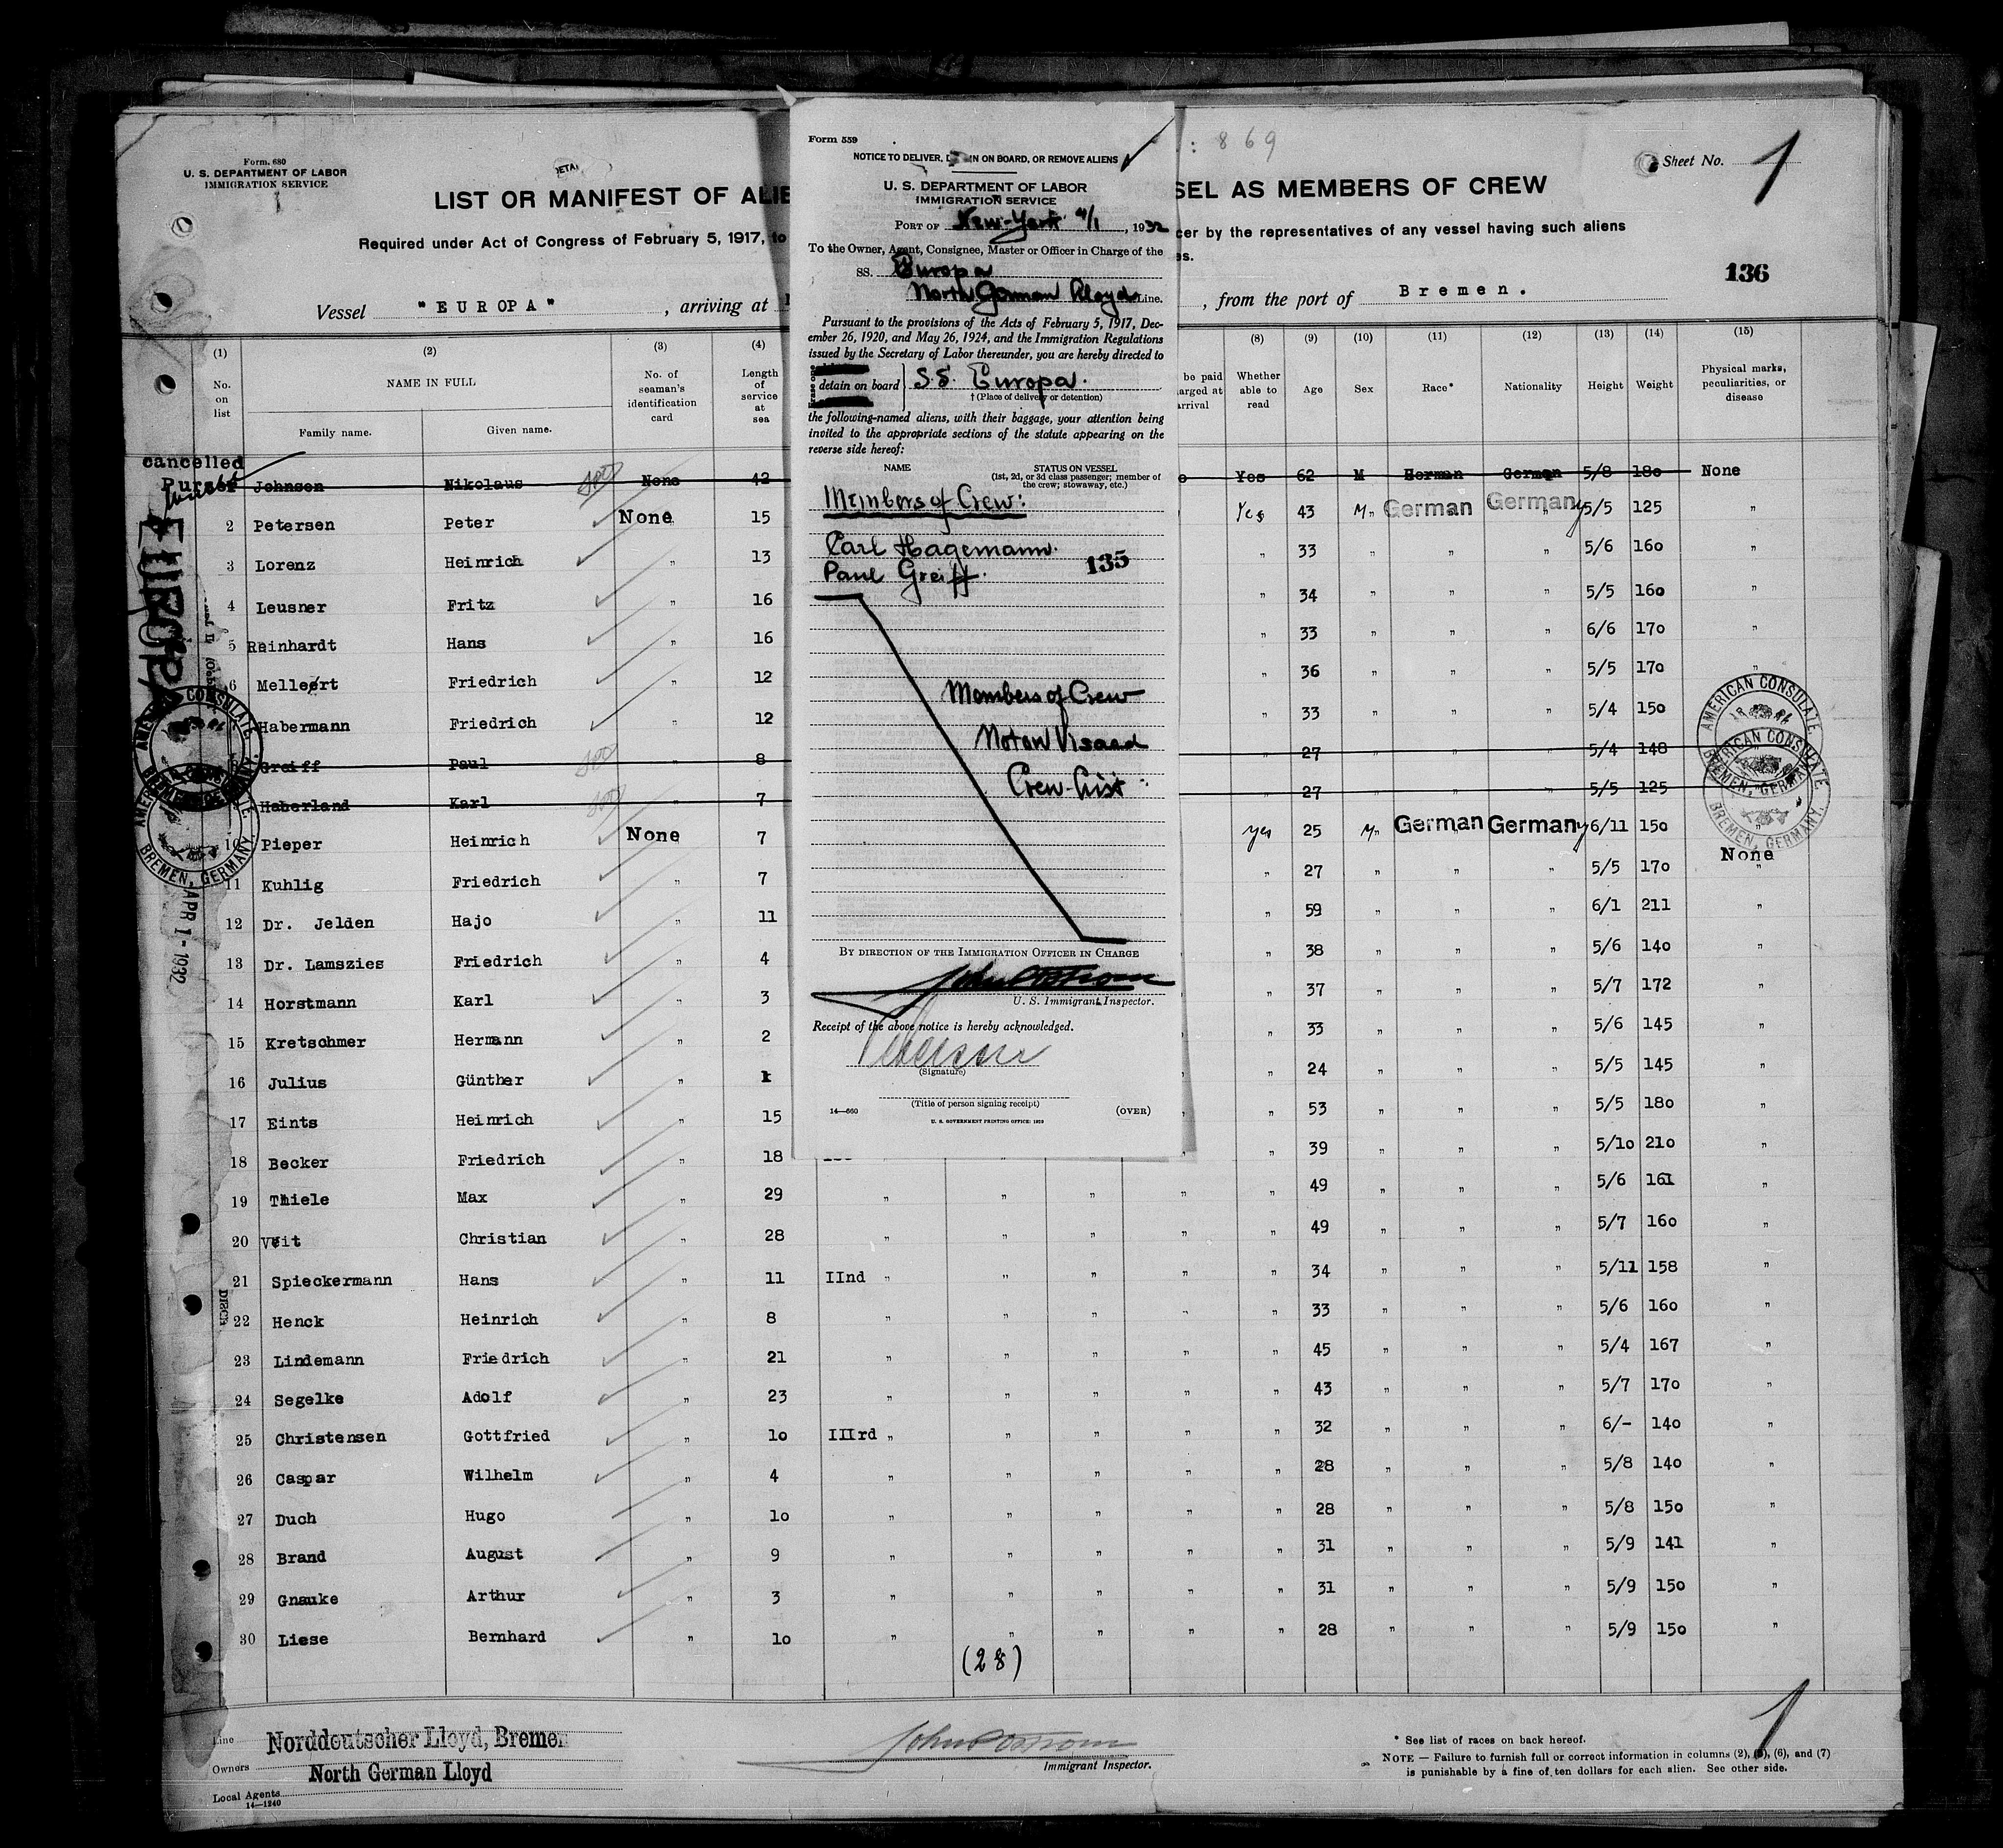 Form. 680
U. S. DEPARTMENT OF LABOR
IMMIGRATION SERVICE
LIST OR MANIFEST OF ALIE
SEL AS MEMBERS OF CREW
869
Sheet No. 1
Required under Act of Congress of February 5, 1917, to
cer by the representatives of any vessel having such aliens
es.
136
Vessel "EUROPA", arriving at
, from the port of Bremen.
Form 559
NOTICE TO DELIVER, IN ON BOARD, OR REMOVE ALIENS
U. S. DEPARTMENT OF LABOR
IMMIGRATION SERVICE
PORT OF New-York 4/1, 1932
To the Owner, Agent, Consignee, Master or Officer in Charge of the
SS. Europa
North German Lloyd Line.
Pursuant to the provisions of the Acts of February 5, 1917, Dec-
ember 26, 1920, and May 26, 1924, and the Immigration Regulations
issued by the Secretary of Labor thereunder, you are hereby directed to
Erase one
detain on board } S.S. Europa.
† (Place of delivery or detention)
the following-named aliens, with their baggage, your attention being
invited to the appropriate sections of the statute appearing on the
reverse side hereof:
NAME STATUS ON VESSEL
(1st, 2d, or 3d class passenger; member of
the crew; stowaway, etc.)
Members of Crew:
Carl Hagemann.
Paul Greiff.
135
Members of Crew
Not on Visaed
Crew-List
BY DIRECTION OF THE IMMIGRATION OFFICER IN CHARGE
U. S. Immigrant Inspector.
Receipt of the above notice is hereby acknowledged.
(Signature)
(Title of person signing receipt)
14—660 (OVER)
U. S. GOVERNMENT PRINTING OFFICE: 1929
(1) (2) (3) (4) (8) (9) (10) (11) (12) (13) (14) (15)
No. on list
NAME IN FULL
Family name. Given name.
No. of seaman's identification card
Length of service at sea
be paid
arged at
rrival
Whether able to read
Age Sex Race* Nationality Height Weight
Physical marks, peculiarities, or disease
cancelled
Purser Johnsen Nikolaus None 42 Yes 62 M German German 5/8 180 None
2 Petersen Peter None 15 Yes 43 M" German Germany 5/5 125
3 Lorenz Heinrich " 13 " 33 " " " 5/6 160 "
4 Leusner Fritz " 16 " 34 " " " 5/5 160 "
5 Reinhardt Hans " 16 " 33 " " " 6/6 170 "
6 Melleert Friedrich " 12 " 36 " " " 5/5 170 "
Habermann Friedrich " 12 " 33 " " " 5/4 150
8 Greiff Paul " 8 " 27 " " " 5/4 148
9 Haberland Karl " 7 " 27 " " " 5/5 125
10 Pieper Heinrich None 7 yes 25 M" German Germany 6/11 150 "
None
11 Kuhlig Friedrich " 7 " 27 " " " 5/5 170 "
12 Dr. Jelden Hajo " 11 " 59 " " " 6/1 211 "
13 Dr. Lamszies Friedrich " 4 " 38 " " " 5/6 140 "
14 Horstmann Karl " 3 " 37 " " " 5/7 172 "
15 Kretschmer Hermann " 2 " 33 " " " 5/6 145 "
16 Julius Günther " 1 " 24 " " " 5/5 145 "
17 Eints Heinrich " 15 " 53 " " " 5/5 180 "
18 Becker Friedrich " 18 " 39 " " " 5/10 210 "
19 Thiele Max " 29 " " " " " 49 " " " 5/6 161 "
20 Veit Christian " 28 " " " " " 49 " " " 5/7 160 "
21 Spieckermann Hans " 11 IInd " " " " " 34 " " " 5/11 158 "
22 Henck Heinrich " 8 " " " " " 33 " " " 5/6 160 "
23 Lindemann Friedrich " 21 " " " " " 45 " " " 5/4 167 "
24 Segelke Adolf " 23 " " " " " 43 " " " 5/7 170 "
25 Christensen Gottfried " 10 IIIrd " " " " " 32 " " " 6/- 140 "
26 Caspar Wilhelm " 4 " " " " " 28 " " " 5/8 140 "
27 Duch Hugo " 10 " " " " " 28 " " " 5/8 150 "
28 Brand August " 9 " " " " " 31 " " " 5/9 141 "
29 Gnauke Arthur " 3 " " " " " 31 " " " 5/9 150 "
30 Liese Bernhard " 10 " " " " " 28 " " " 5/9 150 "
(28)
EUROPA
AMERICAN CONSULATE
BREMEN, GERMANY
APR 1-1932
AMERICAN CONSULATE
BREMEN, GERMANY
Line Norddeutscher Lloyd, Bremen
Owners North German Lloyd
Local Agents
14—1240
Immigrant Inspector.
1
* See list of races on back hereof.
NOTE — Failure to furnish full or correct information in columns (2), (5), (6), and (7)
is punishable by a fine of ten dollars for each alien. See other side.